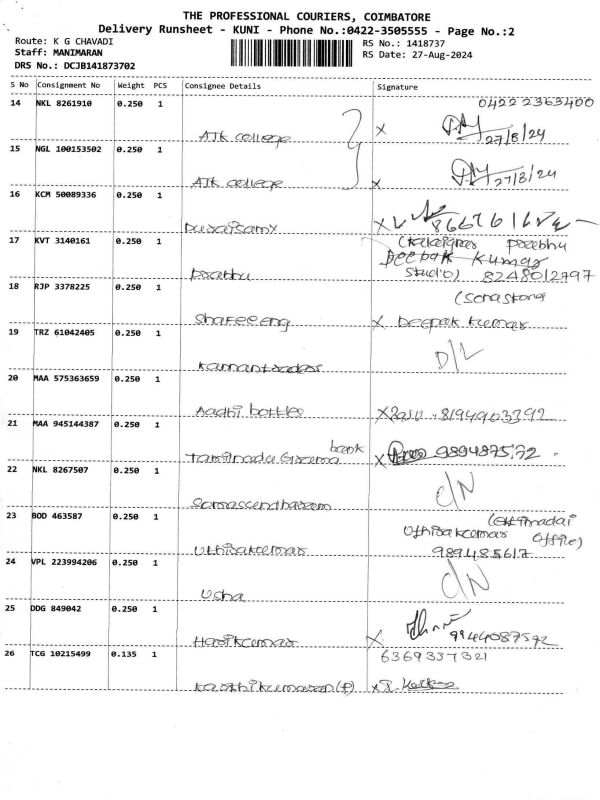 THE PROFESSIONAL COURIERS, COIMBATORE
Delivery Runsheet - KUNI - Phone No.:0422-3505555 - Page No.:2
Route: K G CHAVADI
RS No.: 1418737
Staff: MANIMARAN
RS Date: 27-Aug-2024
DRS No.: DCJB141873702
S No Consignment No Weight PCS Consignee Details Signature
04222363400
14 NKL 8261910 0.250 1
AJK college X 27/8/24
15 NGL 100153502 0.250 1
AJK college x 27/8/24
16 KCM 50089336 0.250 1
Duraisamy X
17 KVT 3140161 0.250 1
Prabhu
Deepak Kumar
Studio) 8248012797
18 RJP 3378225 0.250 1
Shafeeeng X Deepak Kumar
19 TRZ 61042405 0.250 1
D/L
20 MAA 575363659 0.250 1
Aadhi bottles X 8194903392
21 MAA 945144387 0.250 1
bank
Tamilnadu Grama X 989487572
22 NKL 8267507 0.250 1
C/N
23 BOD 463587 0.250 1
(Ettimadai
Uthisakumar Office)
Uthisakumar 989485617
24 VPL 223994206 0.250 1
C/N
Usha
25 DDG 849042 0.250 1
Harikumar X 9944087572
26 TCG 10215499 0.135 1
6369337321
Karthikumaran(P) x